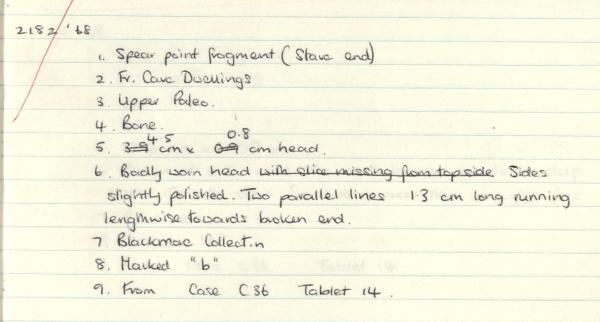 2182 '68
1. Spear point fragment (Stave end)
2. Fr. Cave Dwellings
3. Upper Paleo.
4. Bone.
5. 3.9 4.5 cm x 0.9 0.8 cm head.
6. Badly worn head with slice missing from topside. Sides
slightly polished. Two parallel lines 1.3 cm long running
lengthwise towards broken end.
7. Blackmac Collect.n
8. Marked "b"
9. From Case C36 Tablet 14.